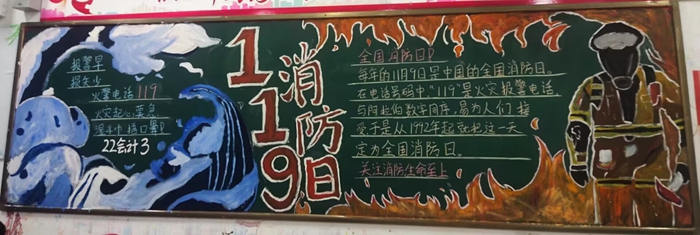 报警早
损失少
火警电话119
火灾起火要急
湿毛巾捂口鼻
22会计3
119
消防日
全国消防日
每年的11月9日是中国的全国消防日。
在电话号码中"119"是火灾报警电话
与阿拉伯数字同序,易为人们接
受于是从1992年起就把这一天
定为全国消防日。
关注消防生命至上